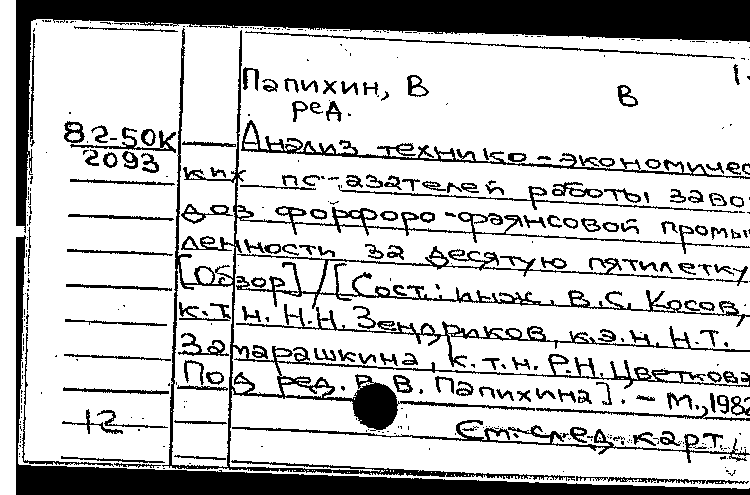 1.
Папихин, В В
ред.
82-50К
2093
Анализ технико-экономичес
ких по-азателей работы заво-
дов фарфоро-фаянсовой промыш
ленности за десятую пятилетку
[Обзор] / [Сост.: инж. В.С. Косов,
к.т.н. Н.Н. Зендриков, к.э.н. Н.Т.
Затарашкина, к.т.н. Р.Н. Цветкова
Под ред. В.В. Папихина]. - М., 1982
12
См. след. карт.